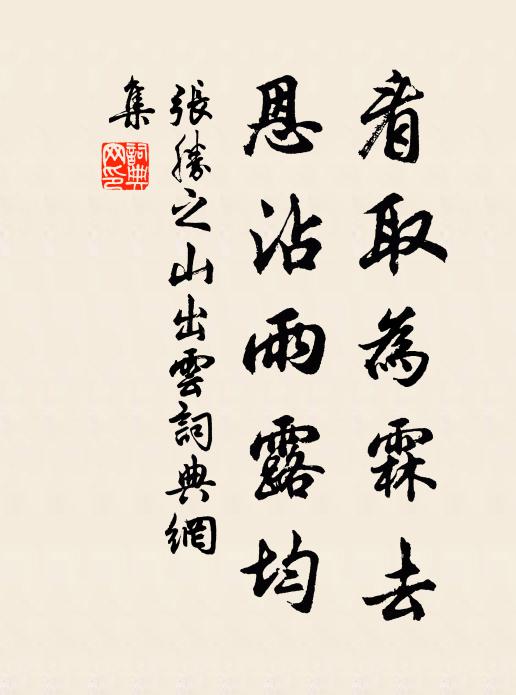 看取為霖去
恩沾雨露均
張勝之山出雲詞典網
集
詞典
网印